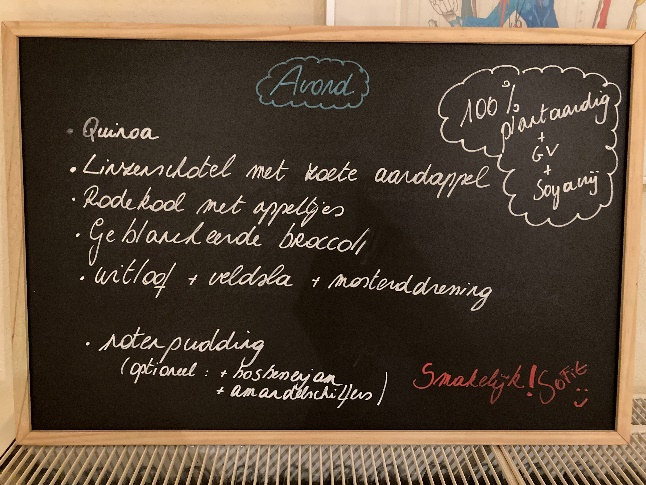 Avond
100%
plantaardig
+
GV
+
Soyavrij
• Quinoa
• Linzenschotel met zoete aardappel
• Rodekool met appeltjes
• Geblancheerde broccoli
• witloof + veldsla + mosterddressing
• notenpudding
(optioneel: + bosbessenjam
+ amandelschilfers)
Smakelijk! Sofie